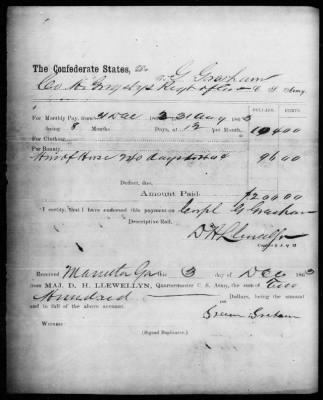 The Confederate States, To G Gresham
Co K Regt of Cav C. S. Army.
DOLLARS. CENTS.
For Monthly Pay, from 31 Dec 186 2 31 Aug 1863
being 8 Months Days, at 13 per Month,
For Clothing,
For Bounty,
Use of Horse 240 days 96 00
Deduct, due,
Amount Paid. $200 00
I certify, that I have endorsed this payment on Corpl G Gresham
Descriptive Roll.
D H Llewellyn
Received Manilla Ga this 3 day of Dec 1863
from MAJ. D. H. LLEWELLYN, Quartermaster C. S. Army, the sum of Two
Hundred Dollars, being the amount
and in full of the above account.
Green Gresham
Witness:
(Signed Duplicates.)